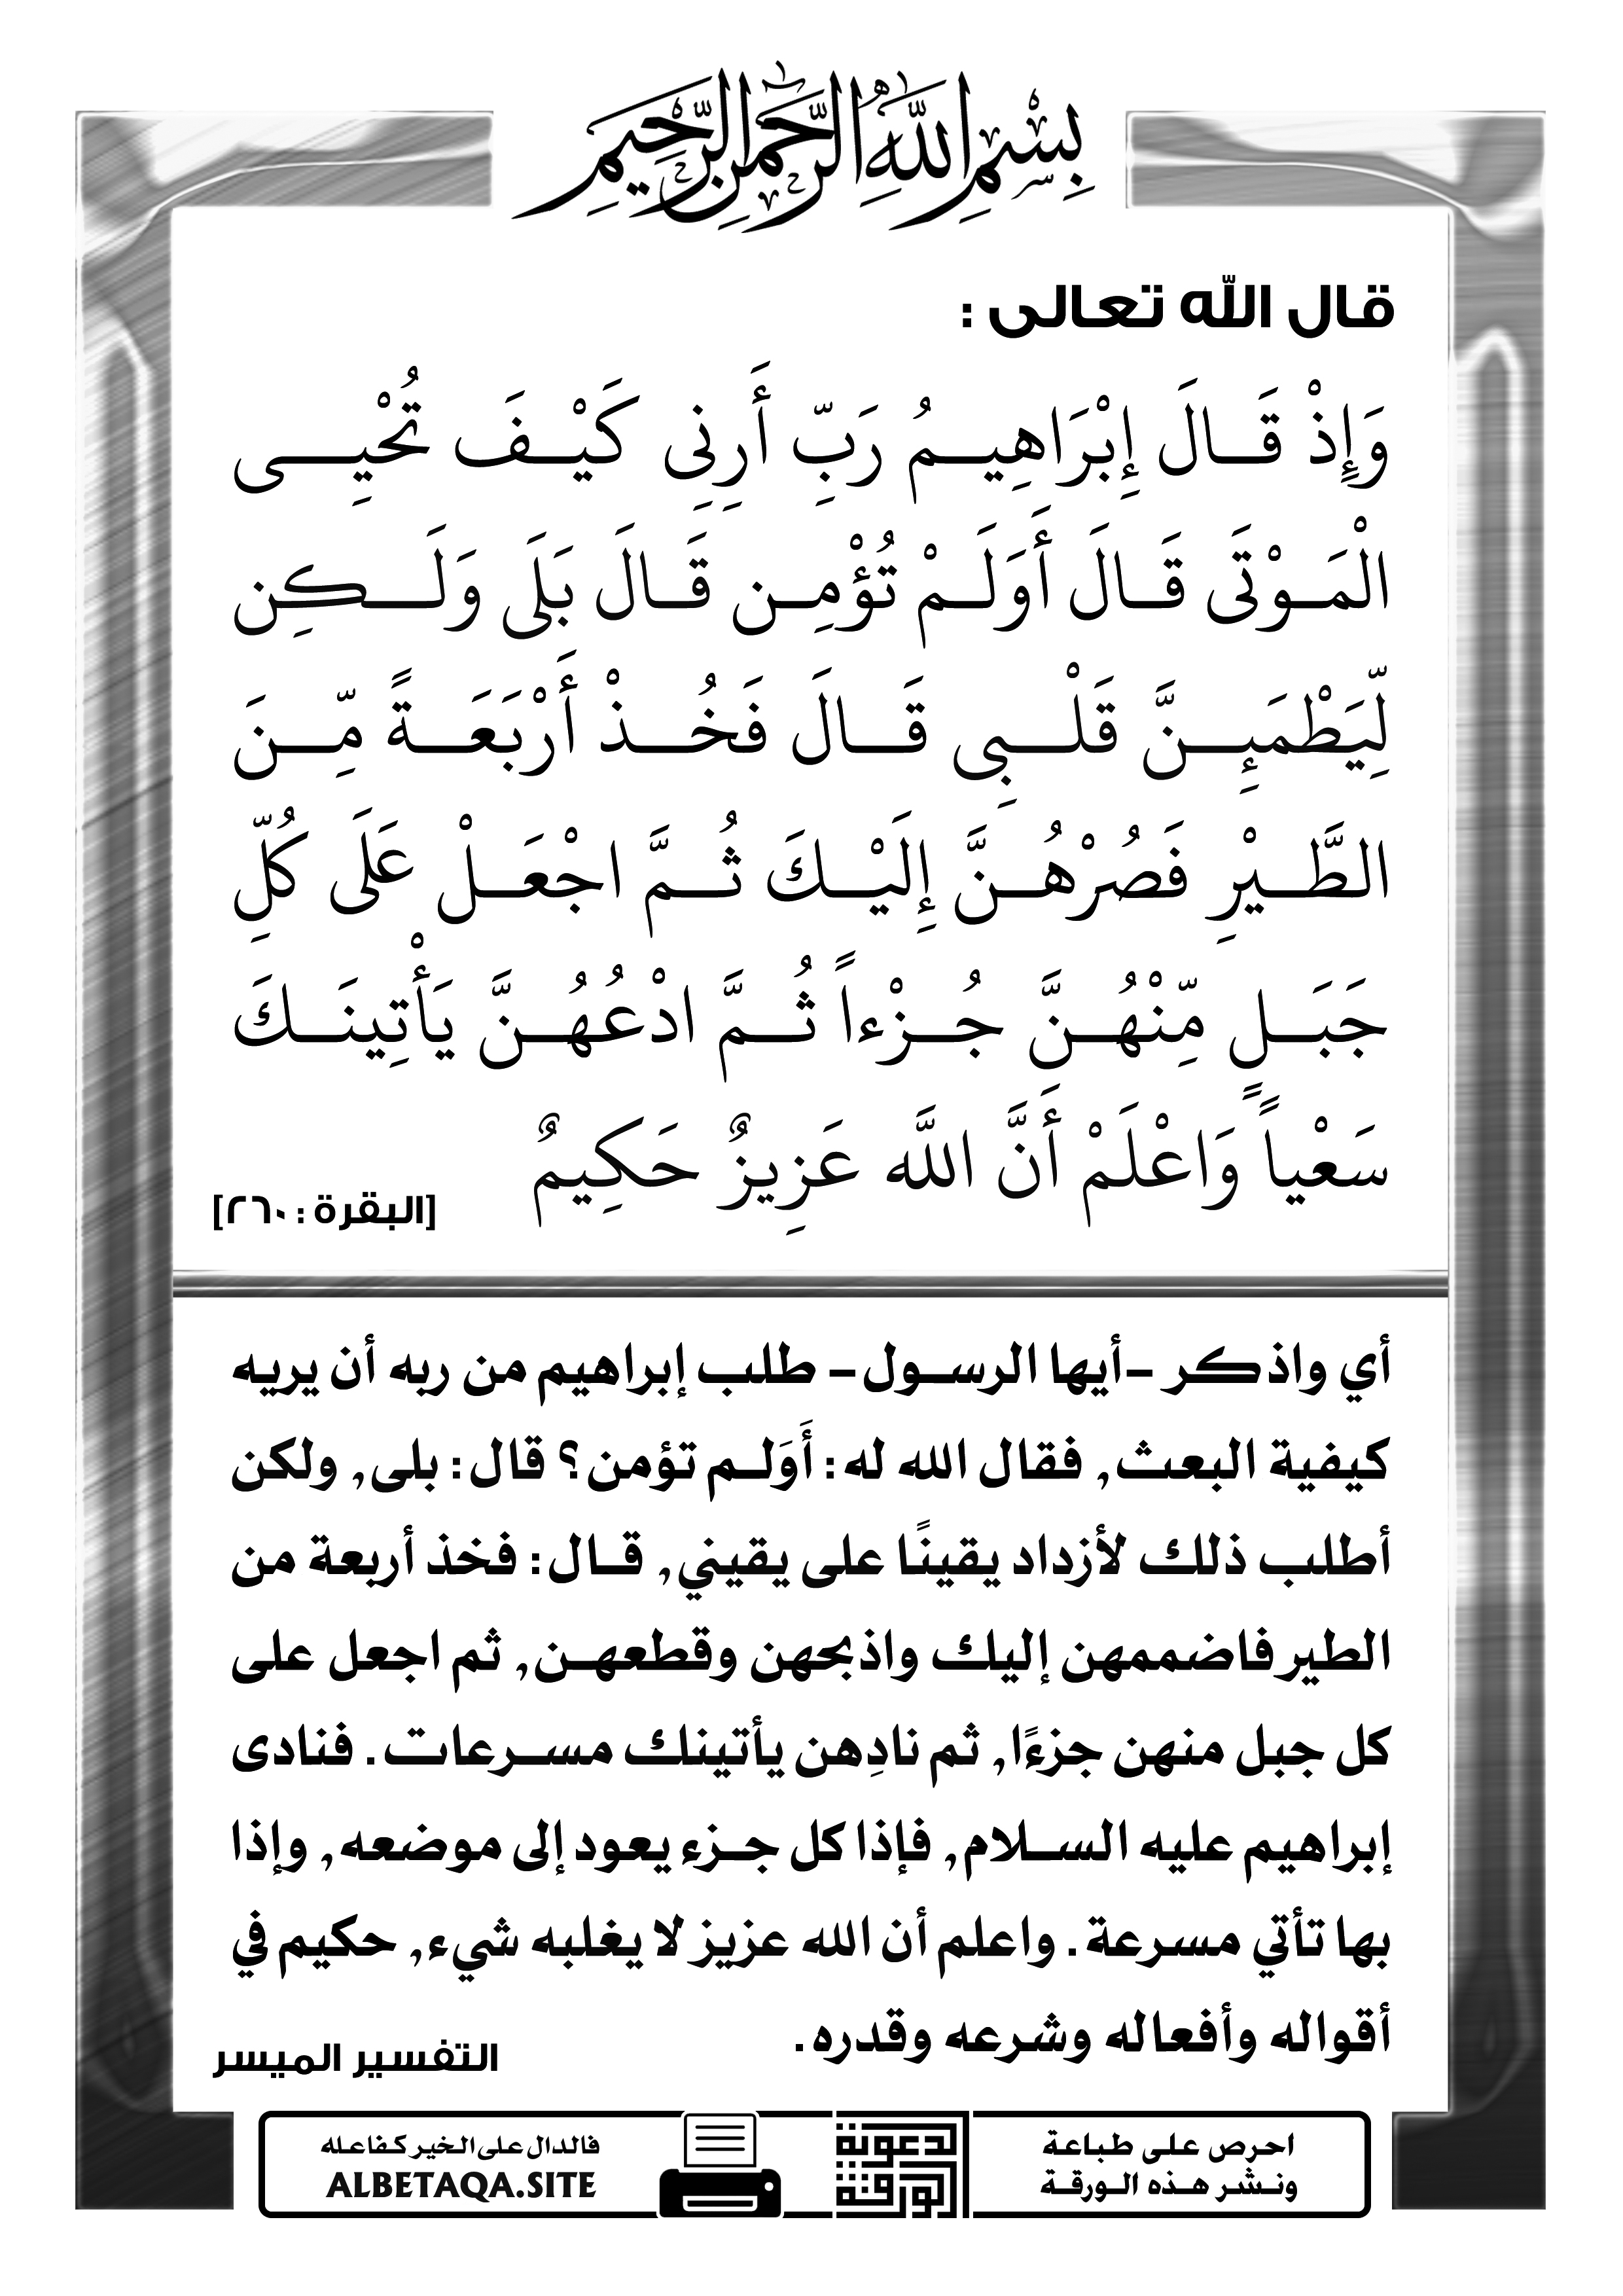 بِسْمِ اللَّهِ الرَّحْمَنِ الرَّحِيمِ
قال الله تعالى :
وَإِذْ قَـالَ إِبْرَاهِيـمُ رَبِّ أَرِنِى كَيْـفَ تُحْيِـى
الْمَـوْتَى قَـالَ أَوَلَـمْ تُؤْمِـن قَـالَ بَلَى وَلَـكِن
لِّيَطْمَئِـنَّ قَلْـبِى قَـالَ فَخُـذْ أَرْبَعَـةً مِّـنَ
الطَّـيْرِ فَصُرْهُـنَّ إِلَيْـكَ ثُـمَّ اجْعَـلْ عَلَى كُلِّ
جَبَـلٍ مِّنْهُـنَّ جُـزْءاً ثُـمَّ ادْعُهُـنَّ يَأْتِينَـكَ
سَعْياً وَاعْلَمْ أَنَّ اللَّه عَزِيزٌ حَكِيمٌ
[البقرة : ٢٦٠]
أي واذكر -أيها الرسـول- طلب إبراهيم من ربه أن يريه
كيفية البعث, فقال الله له: أَوَلـم تؤمن؟ قال: بلى, ولكن
أطلب ذلك لأزداد يقينًا على يقيني, قـال: فخذ أربعة من
الطير فاضممهن إليك واذبحهن وقطعهـن, ثم اجعل على
كل جبل منهن جزءًا, ثم نادِهن يأتينك مسـرعات. فنادى
إبراهيم عليه السـلام, فإذا كل جـزء يعود إلى موضعه, وإذا
بها تأتي مسرعة. واعلم أن الله عزيز لا يغلبه شيء, حكيم في
أقواله وأفعاله وشرعه وقدره.
التفسير الميسر
احرص على طباعة
ونـشر هـذه الـورقـة
الورقة
الدعوية
فالدال على الخير كفاعله
ALBETAQA.SITE